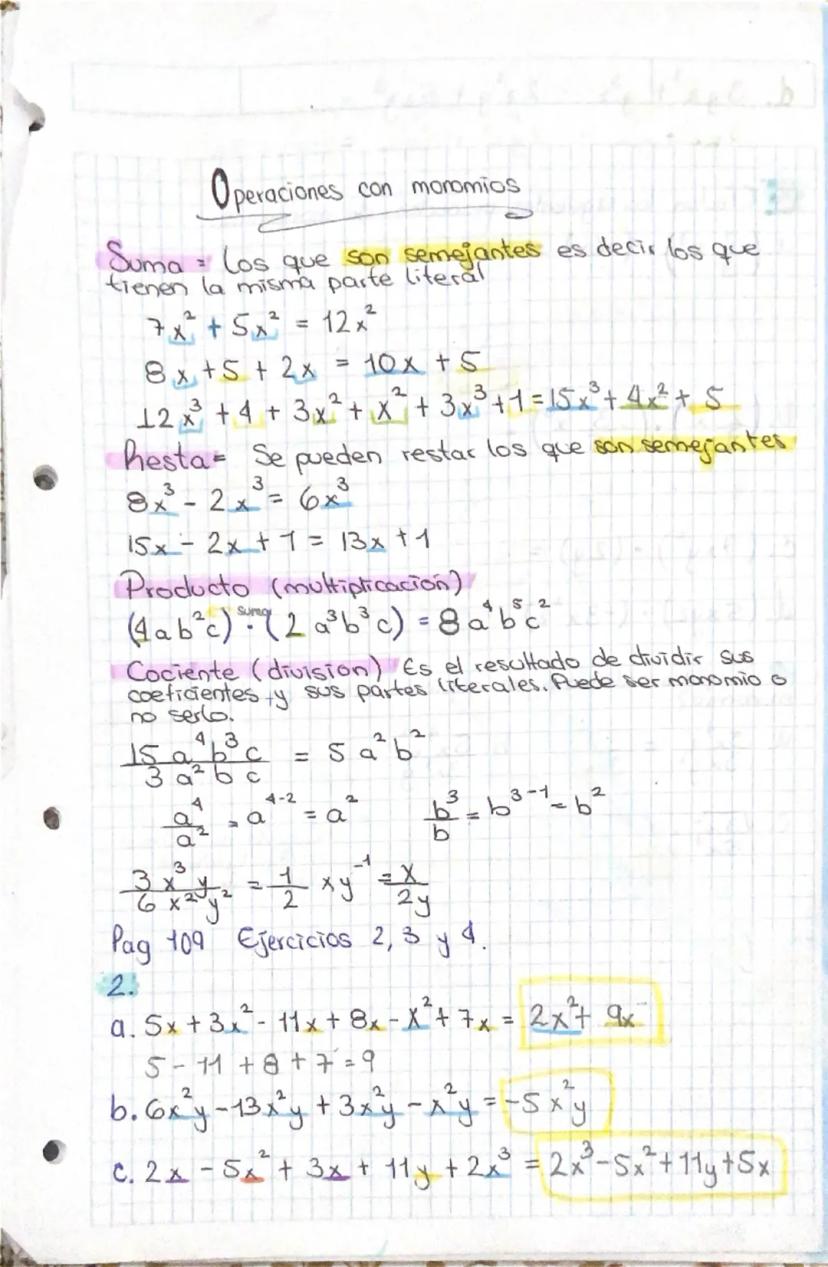 Operaciones con monomios
Suma = Los que son semejantes es decir los que
tienen la misma parte literal
7x² + 5x² = 12x²
8x + 5 + 2x = 10x + 5
12x³ + 4 + 3x² + x² + 3x³ + 1 = 15x³ + 4x² + 5
Resta = Se pueden restar los que son semejantes
8x³ - 2x³ = 6x³
15x - 2x + 1 = 13x + 1
Producto (multiplicación)
suma
(4ab²c) · (2a³b³c) = 8a⁴b⁵c²
Cociente (division) Es el resultado de dividir sus
coeficientes y sus partes literales. Puede ser monomio o
no serlo.
15a⁴b³c / 3a²bc = 5a²b²
a⁴/a² = a⁴⁻² = a² b³/b = b³⁻¹ = b²
3x³y / 6x²y² = 1/2 xy⁻¹ = x/2y
Pag 109 Ejercicios 2, 3 y 4.
2.
a. 5x + 3x² - 11x + 8x - x² + 7x = 2x² + 9x
5 - 11 + 8 + 7 = 9
b. 6x²y - 13x²y + 3x²y - x²y = -5x²y
c. 2x - 5x² + 3x + 11y + 2x³ = 2x³ - 5x² + 11y + 5x